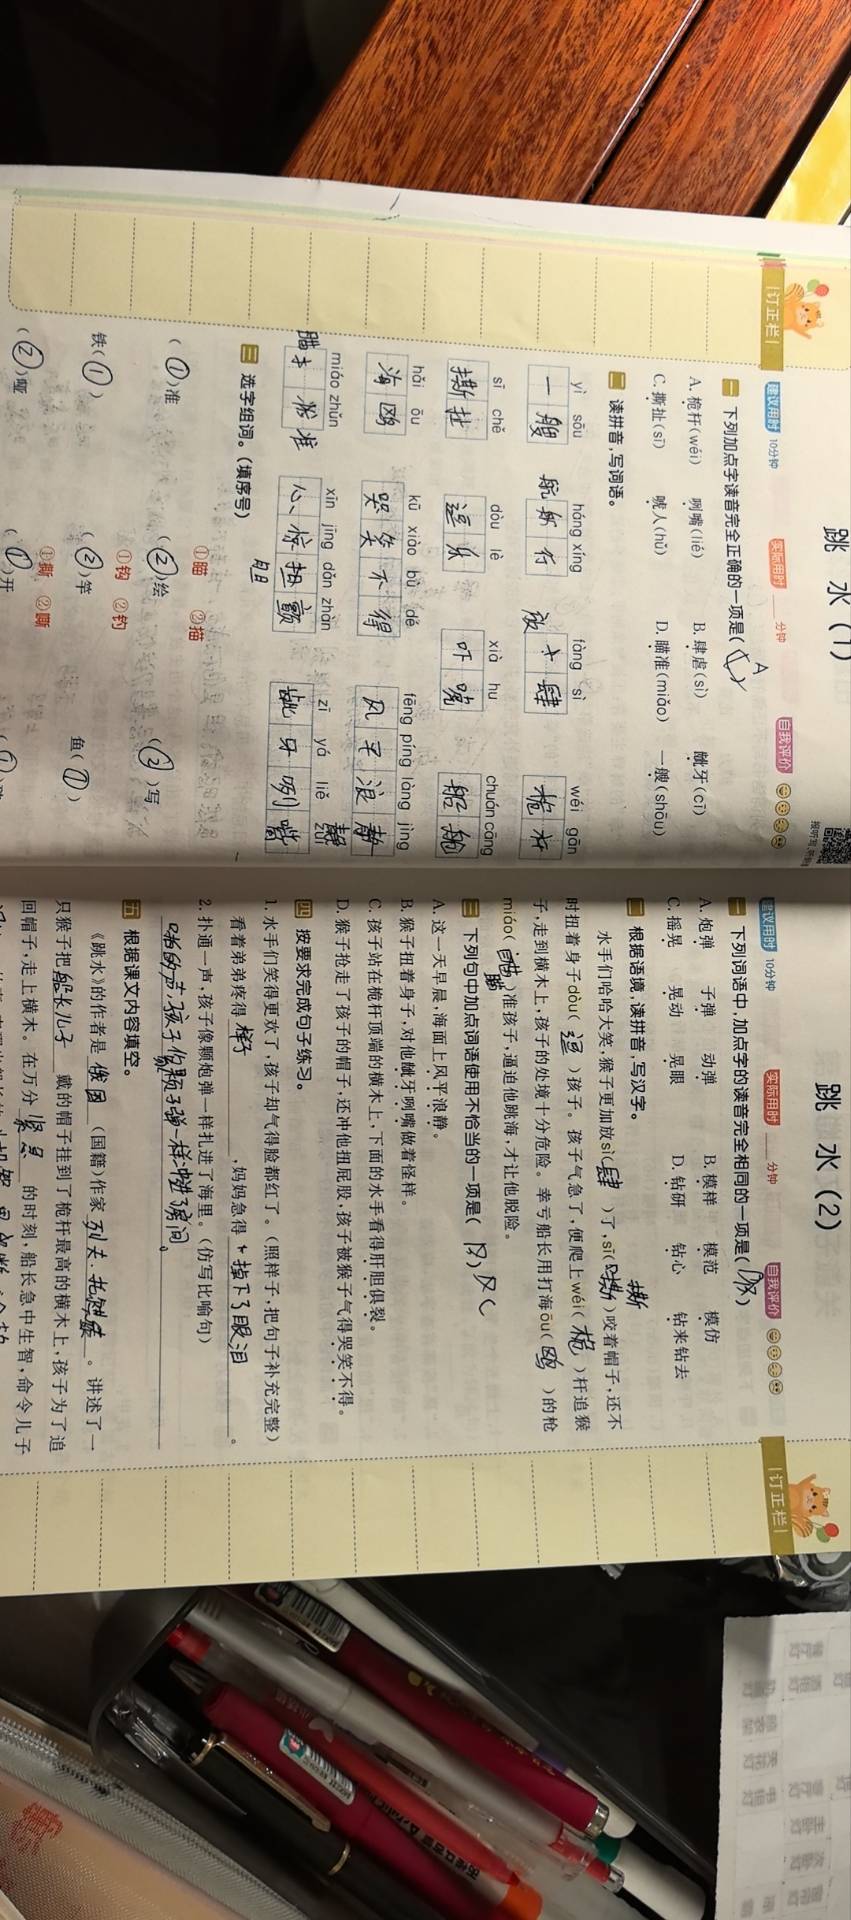 跳 水（1）
建议用时 10分钟 实际用时 ____分钟 自我评价
订正栏
一 下列加点字读音完全正确的一项是( A )
A. 桅杆(wéi) 咧嘴(lié) B. 肆虐(sì) 龇牙(cī)
C. 撕扯(sī) 唬人(hǔ) D. 瞄准(miǎo) 一艘(shōu)
二 读拼音,写词语。
yì sōu háng xíng fàng sì wéi gān
一艘 航行 放肆 桅杆
sī chě dòu lè xià hu chuán cāng
撕扯 逗乐 吓唬 船舱
hǎi ōu kū xiào bù dé fēng píng làng jìng
海鸥 哭笑不得 风平浪静
miáo zhǔn xīn jīng dǎn zhàn zī yá liě zuǐ
心惊胆颤 龇牙咧嘴
三 选字组词。(填序号)
①瞄 ②描
(①)准 (②)绘 (②)写
①钩 ②钓
铁(①) (②)竿 鱼(①)
①撕 ②嘶
(②)哑 (①)开
跳 水（2）
建议用时 10分钟 实际用时 ____分钟 自我评价
订正栏
一 下列词语中,加点字的读音完全相同的一项是(
A. 炮弹 子弹 动弹 B. 模样 模范 模仿
C. 摇晃 晃动 晃眼 D. 钻研 钻心 钻来钻去
二 根据语境,读拼音,写汉字。
水手们哈哈大笑,猴子更加放sì(肆)了,sī(撕)咬着帽子,还不
时扭着身子dòu(逗)孩子。孩子气急了,便爬上wéi(桅)杆追猴
子,走到横木上,孩子的处境十分危险。幸亏船长用打海ōu(鸥)的枪
miáo(瞄)准孩子,逼迫他跳海,才让他脱险。
三 下列句中加点词语使用不恰当的一项是( C
A. 这一天早晨,海面上风平浪静。
B. 猴子扭着身子,对他龇牙咧嘴做着怪样。
C. 孩子站在桅杆顶端的横木上,下面的水手看得肝胆俱裂。
D. 猴子抢走了孩子的帽子,还冲他扭屁股,孩子被猴子气得哭笑不得。
四 按要求完成句子练习。
1. 水手们笑得更欢了,孩子却气得脸都红了。(照样子,把句子补充完整)
看着弟弟疼得 ,妈妈急得掉下了眼泪。
2. 扑通一声,孩子像颗炮弹一样扎进了海里。(仿写比喻句)
啪的一声,孩子像颗子弹一样冲进了房间。
五 根据课文内容填空。
《跳水》的作者是俄国(国籍)作家列夫·托尔斯泰。讲述了一
只猴子把船长儿子戴的帽子挂到了桅杆最高的横木上,孩子为了追
回帽子,走上横木。在万分紧急的时刻,船长急中生智,命令儿子